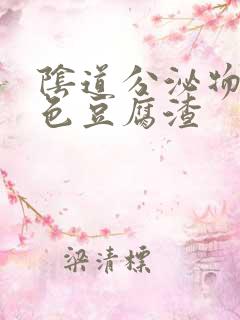 陰道分泌物
色豆腐渣
梁清標